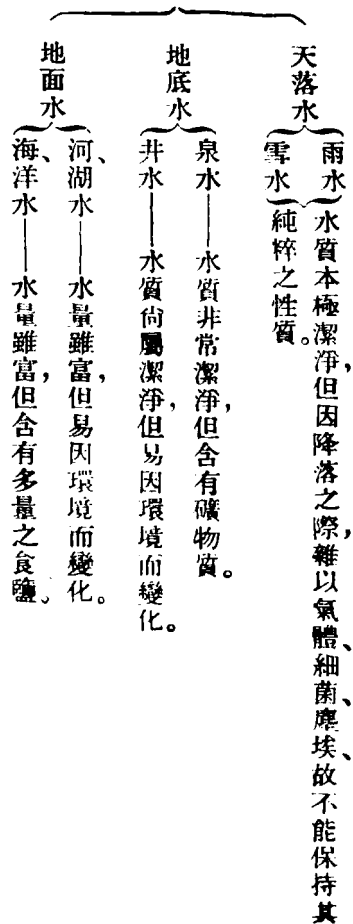 天落水
雨水
雪水
水質本極潔淨，但因降落之際，雜以氣體、細菌、塵埃、故不能保持其
純粹之性質。
地底水
泉水——水質非常潔淨，但含有礦物質。
井水——水質尙屬潔淨，但易因環境而變化。
地面水
河、湖水——水量雖富，但易因環境而變化。
海、洋水——水量雖富，但含有多量之食鹽。